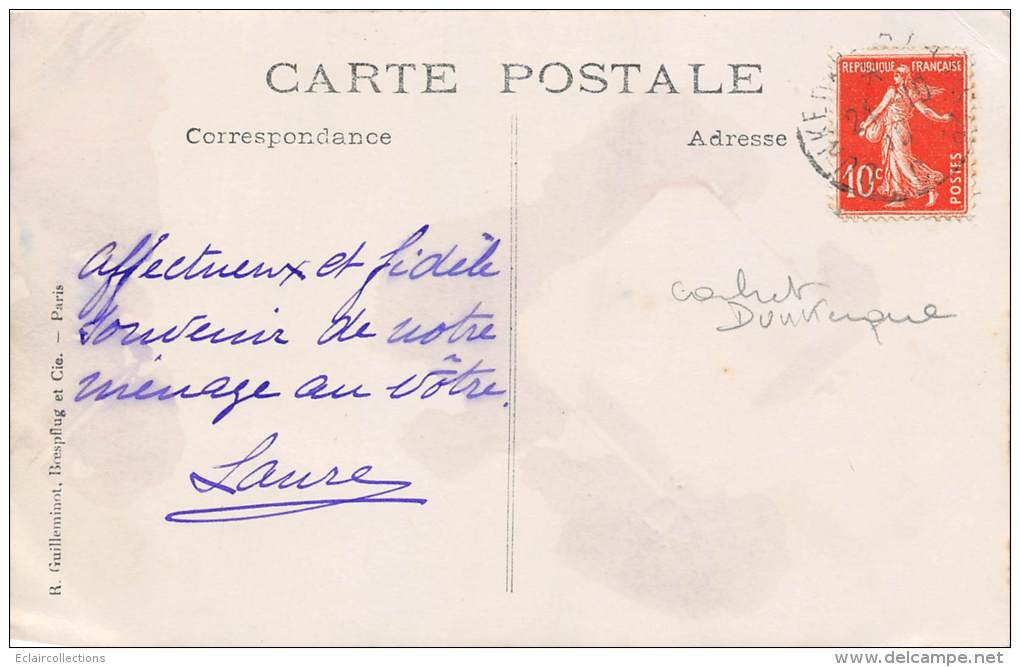 CARTE POSTALE
Correspondance
Adresse
REPUBLIQUE FRANÇAISE
10c
POSTES
affectueux et fidèle
souvenir de notre
ménage au vôtre.
Laure
cachet
Dunkerque
R. Guilleminot, Bœspflug et Cie. — Paris
Eclaircollections
delcampe.net